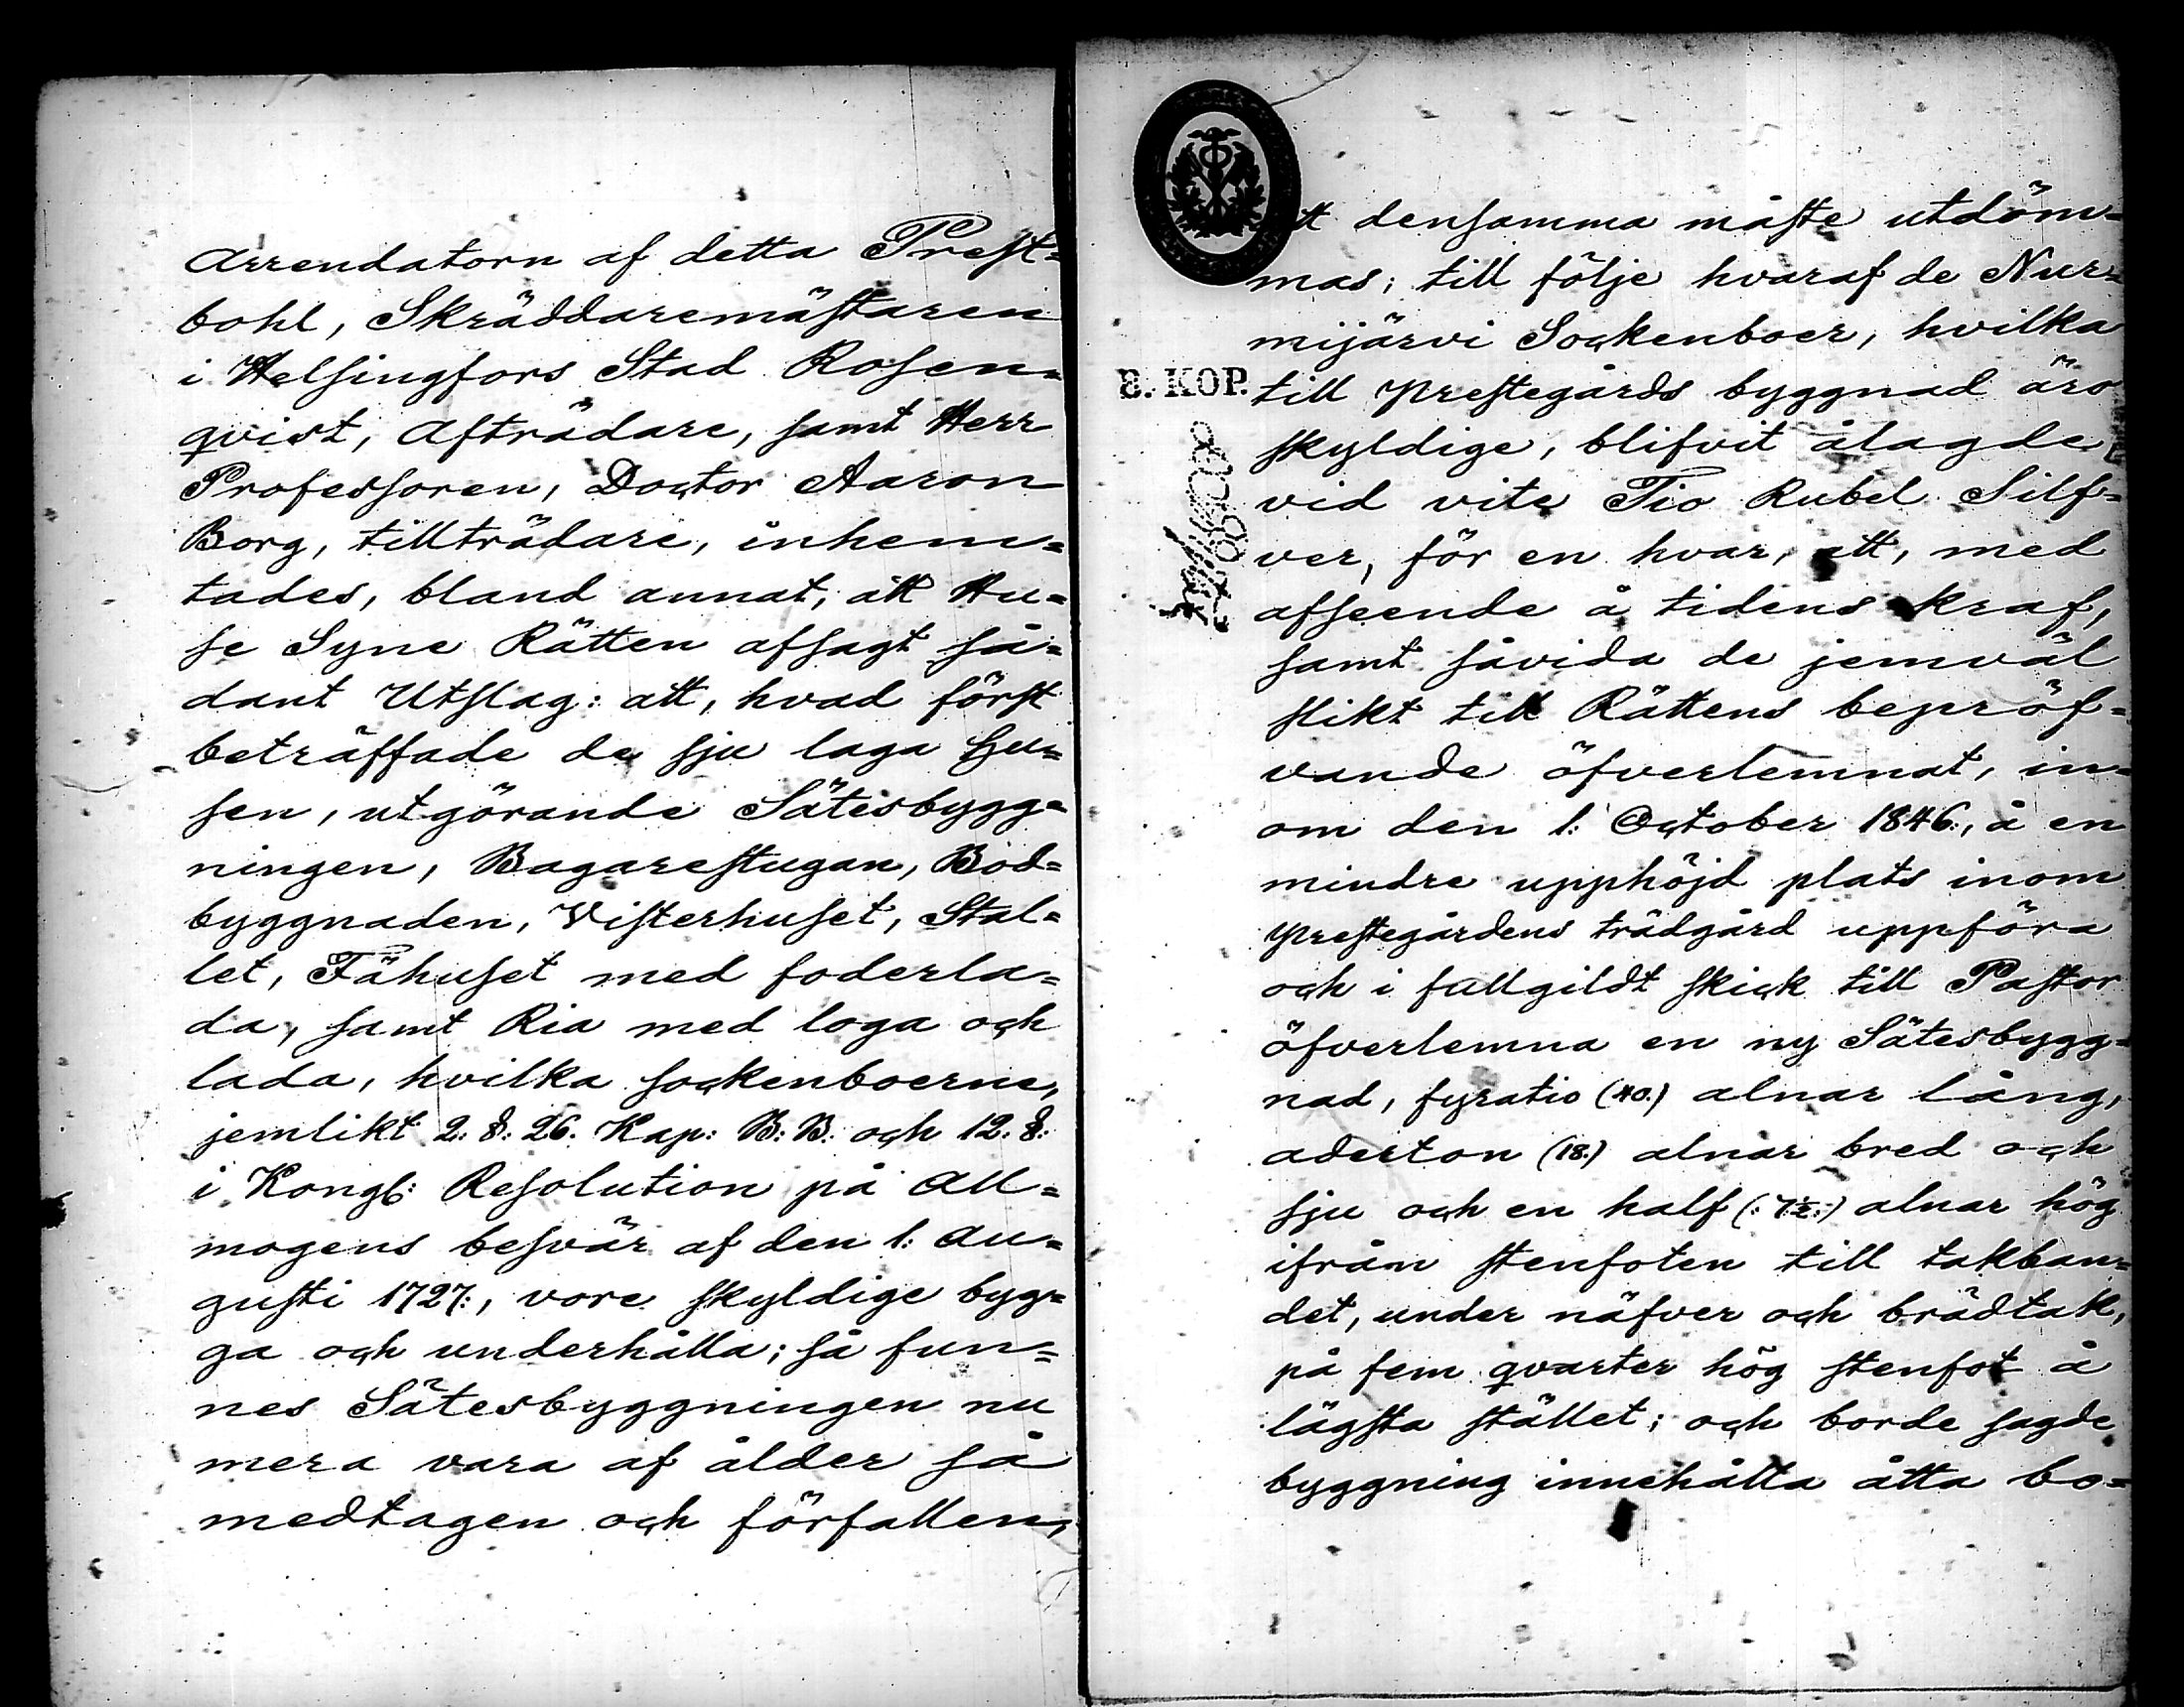 Arrendatorn af detta Prest=
bohl, Skräddaremästaren
i Helsingfors Stad Rosen=
qvist, Afträdare, samt Herr
Professoren, Doctor Aaron
Borg, tillträdare, inhem=
tades, bland annat, att Hu=
se Syne Rätten afsagt så=
dant Utslag: att, hvad först
beträffade de sju laga hu=
sen, utgörande Sätesbygg=
ningen, Bagarestugan, Bod=
byggnaden, Visterhuset, Stal=
let, Fähuset med foderla=
da, samt Ria med loga och
lada, hvilka sockenboerne,
jemlikt 2: §: 26. Kap: B: B: och 12: §:
i Kongl: Resolution på All=
mogens besvär af den 1: Au=
gusti 1727:, vore skyldige byg=
ga och underhålla; så fun=
nes Sätesbyggningen nu
mera vara af ålder så
medtagen och förfallen,
att densamma måste utdöm=
mas; till följe hvaraf de Nur=
mijärvi Sockenboer, hvilka
8. KOP.
till prestegårds byggnad äro
skyldige, blifvit ålagde,
vid vite Tio Rubel Silf=
ver, för en hvar, att, med
afseende å tidens kraf,
samt såvida de jemväl
slikt till Rättens bepröf=
vande öfverlemnat, in=
om den 1: October 1846:, å en
mindre upphöjd plats inom
prestegårdens trädgård uppföra
och i fullgildt skick till Pastor
öfverlemna en ny Sätesbygg=
nad, fyratio (40.) alnar lång,
aderton (18.) alnar bred och
sju och en half (: 7½:) alnar hög
ifrån stenfoten till takban=
det, under näfver och brädtak,
på fem qvarter hög stenfot å
lägsta stället; och borde sagde
byggning innehålla åtta bo=